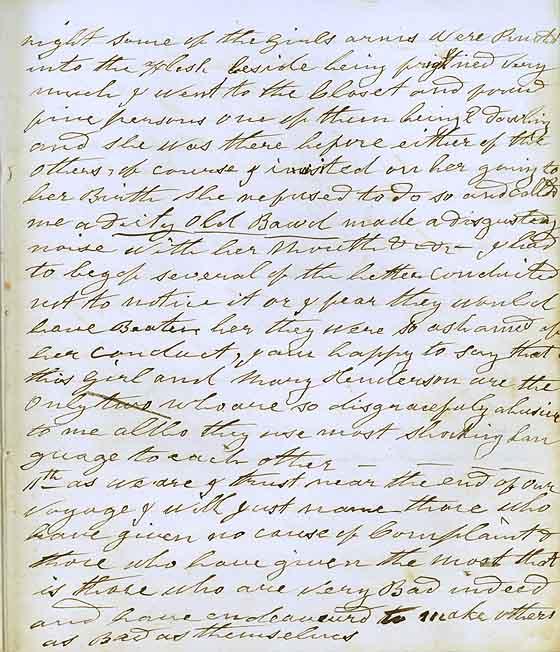 night some of the Girls arms were Pinch'd
into the Flesh beside being frigtned very
much I went to the Closet and found
five persons one of them being E Dowling
and she was there before either of the
others, of course I insisted on her going to
her Birth She refused to do so and calld
me a Dirty Old Bawd made a disgusting
noise with her Mouth &c &c I had
to beg of several of the better conducted
not to notice it or I fear they would
have Beaten her they were so ashamed of
her conduct, I am happy to say that
this Girl and Mary Henderson are the
Only two who are so disgracefuly abusive
to me altho they use most shocking Lan
guage to each other
11th as we are I trust near the end of our
Voyage I will just name those who
have given no cause of Complaint &
those who have given the most that
is those who are very Bad indeed
and have endeavourd to make others
as Bad as themselves